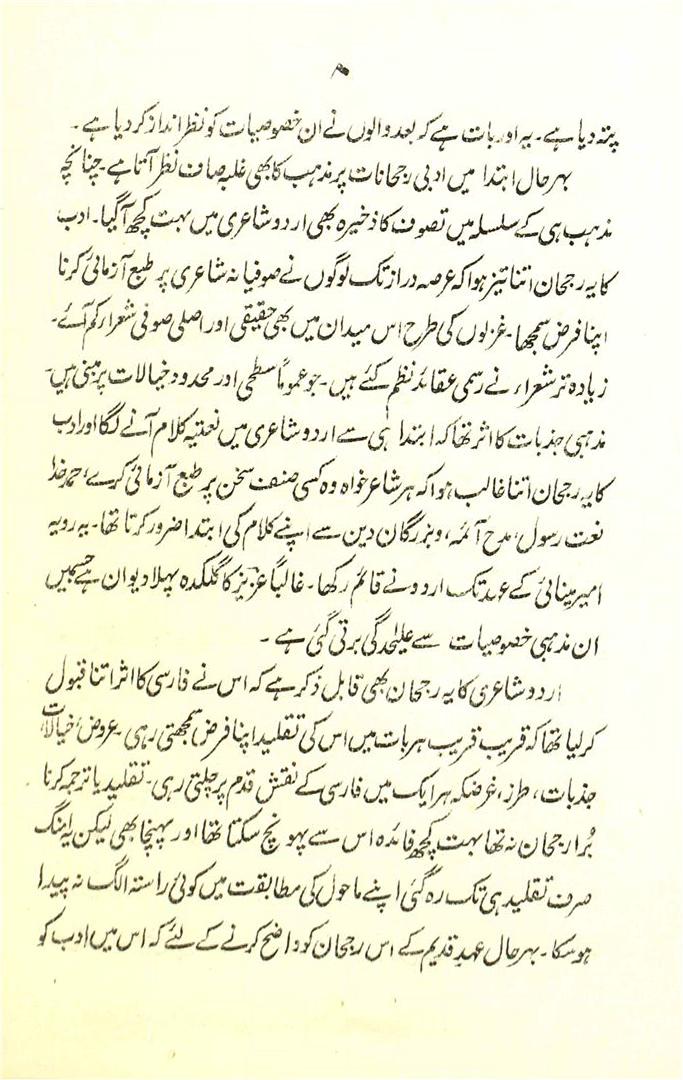 ۳
پتہ دیا ہے۔ یہ اور بات ہے کہ بعد والوں نے ان خصوصیات کو نظر انداز کر دیا ہے۔
بہرحال ابتدا میں ادبی رجحانات پر مذہب کا بھی غلبہ صاف نظر آتا ہے۔ چنانچہ
مذہب ہی کے سلسلہ میں تصوف کا ذخیرہ بھی اردو شاعری میں بہت کچھ آگیا۔ ادب
کا یہ رجحان اتنا تیز ہوا کہ عرصہ دراز تک لوگوں نے صوفیانہ شاعری پر طبع آزمائی کرنا
اپنا فرض سمجھا۔ غزلوں کی طرح اس میدان میں بھی حقیقی اور اصلی صوفی شعرار کم آئے۔
زیادہ تر شعراء نے رسمی عقائد نظم کئے ہیں۔ جو عموماً سطحی اور محدود خیالات پر مبنی ہیں۔
مذہبی جذبات کا اثر تھا کہ ابتدا ہی سے اردو شاعری میں نعتیہ کلام آنے لگا اور ادب
کا یہ رجحان اتنا غالب ہوا کہ ہر شاعر خواہ وہ کسی صنف سخن پر طبع آزمائی کرے، حمد خدا
نعت رسول، مدح آئمہ، و بزرگان دین سے اپنے کلام کی ابتدا ضرور کرتا تھا۔ یہ رویہ
امیر مینائی کے عہد تک اردو نے قائم رکھا۔ غالباً عزیز کا گلکدہ پہلا دیوان ہے جسمیں
ان مذہبی خصوصیات سے علیحدگی برتی گئی ہے۔
اردو شاعری کا یہ رجحان بھی قابل ذکر ہے کہ اس نے فارسی کا اثر اتنا قبول
کر لیا تھا کہ قریب قریب ہر بات میں اس کی تقلید اپنا فرض سمجھتی رہی۔ عروض، خیالات،
جذبات، طرز، غرضکہ ہر ایک میں فارسی کے نقش قدم پر چلتی رہی۔ تقلید یا ترجمہ کرنا
بُرا رجحان نہ تھا بہت کچھ فائدہ اس سے پہونچ سکتا تھا اور پہنچا بھی لیکن یہ امنگ
صرف تقلید ہی تک رہ گئی اپنے ماحول کی مطابقت میں کوئی راستہ الگ نہ پیدا
ہو سکا۔ بہرحال عہد قدیم کے اس رجحان کو واضح کرنے کے لئے کہ اس میں ادب کو